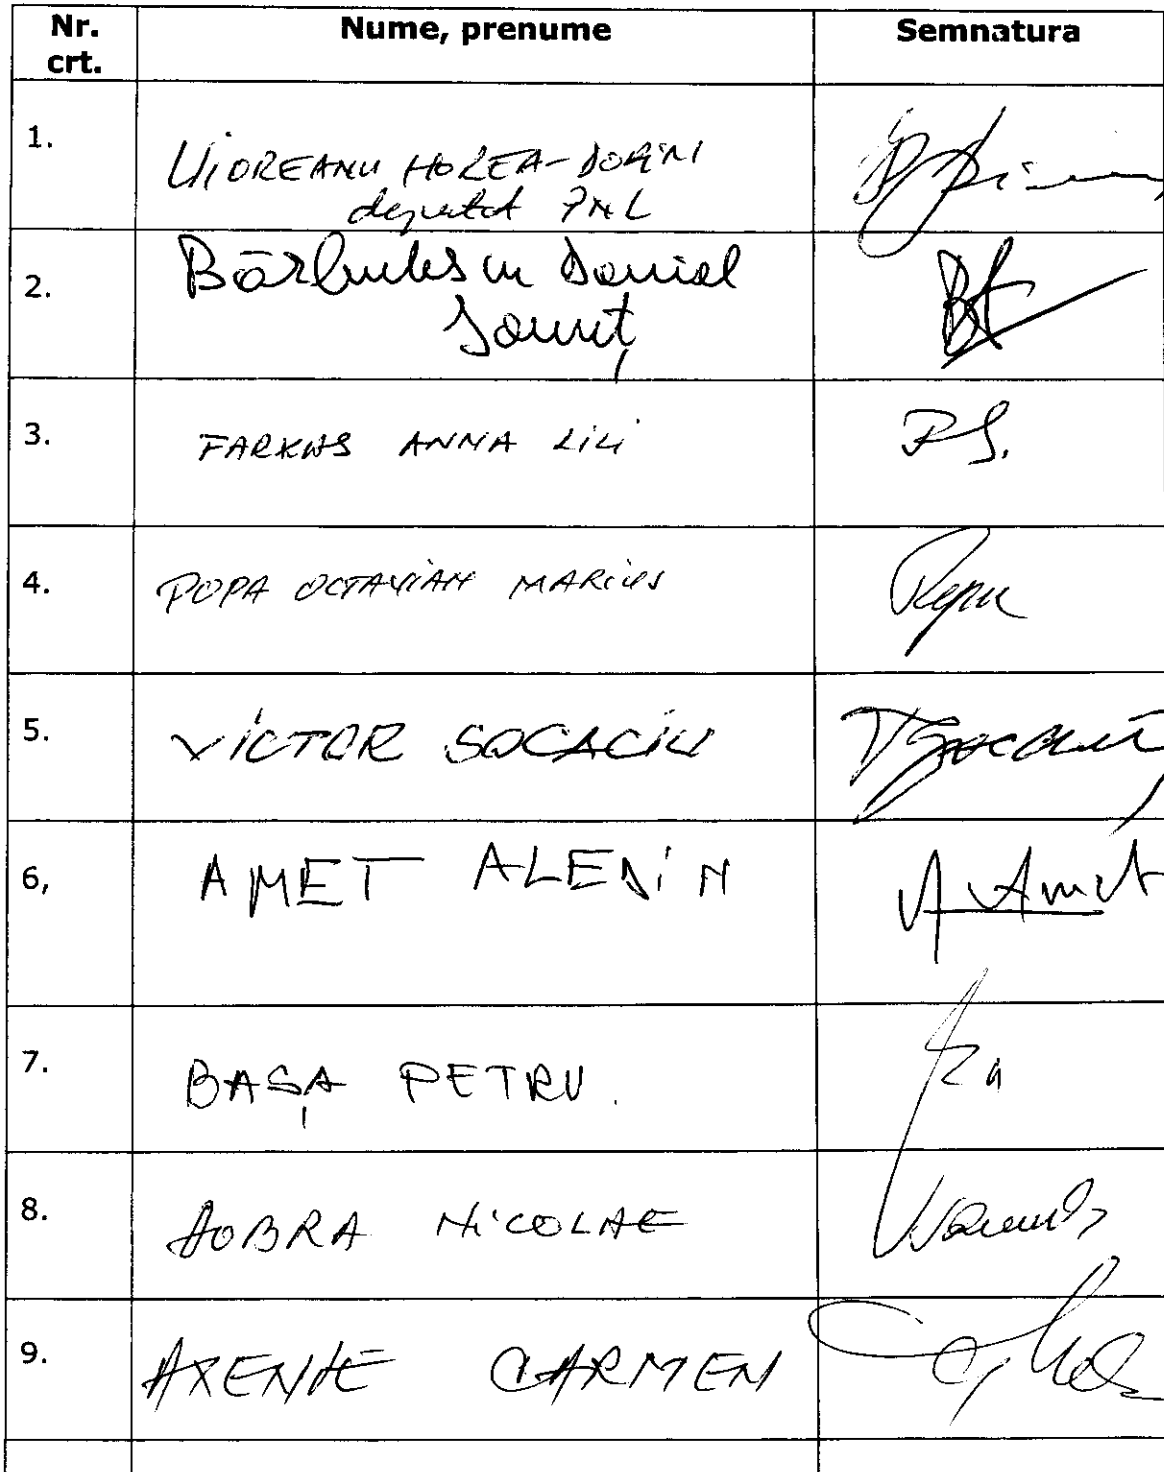 Nr. crt. Nume, prenume Semnatura
1. UIOREANU HOREA-DORIN
deputat PNL
2. Bărbulescu Daniel
Ionuț
3. FARKAS ANNA LILI
4. POPA OCTAVIAN MARIUS
5. VICTOR SOCACIU
6, AMET ALEDIN
7. BAȘA PETRU.
8. DOBRA NICOLAE
9. AXENIE CARMEN